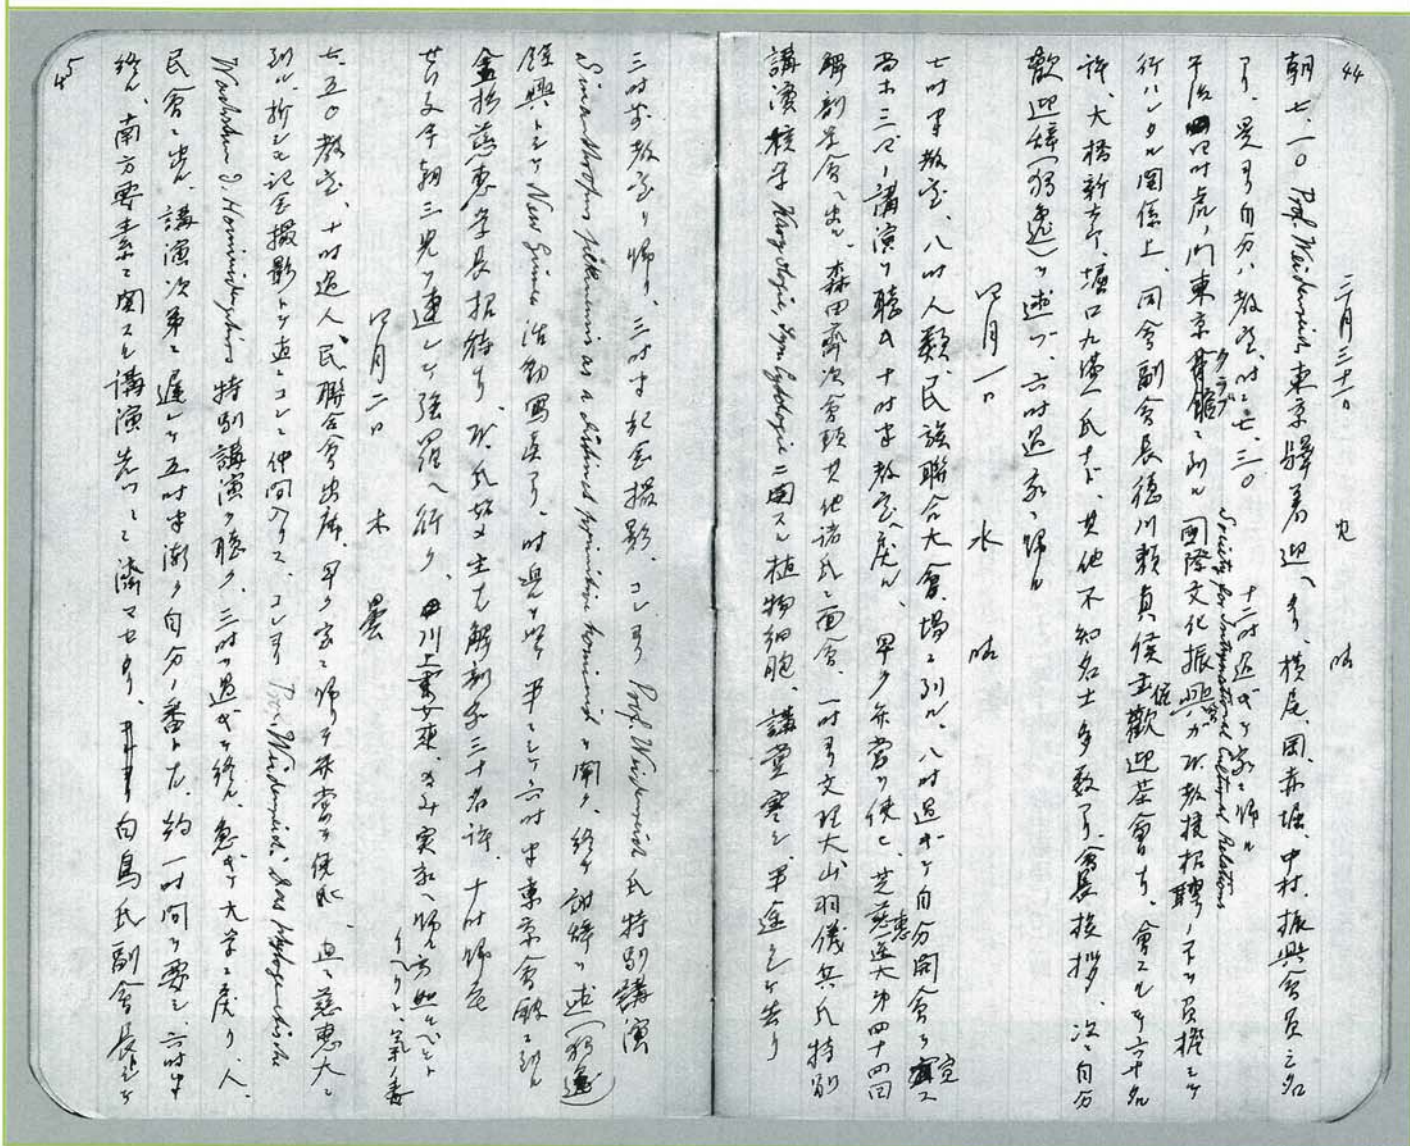 44
三月三十一日 火 晴
朝七.一〇 Prof. Weidenreich 東京驛着迎へタリ、横尾、岡、赤堀、中村、振興會員二名
アリ、是ヨリ自分ハ教室、時ニ七.三〇 十二時過ギテ家ニ帰ル
午后四時虎ノ門東京クラブニ到ル 國際文化振興會ガW教授招聘
Society for International Cultural Relations
行ハレタル関係上、同会副会長徳川頼貞侯主催歓迎茶會ナリ、會スルモノ六十名
許、大橋新太郎、堀口九萬一氏ナド、其他不知名士多数アリ會長挨拶、次ニ自分
歓迎辞(独逸)ヲ述ブ、六時過家ニ帰ル
四月一日 水 晴
七時半教室、八時人類、民族聯合大會場ニ到ル、八時過ギテ自分開會ヲ宣ス
尚ホ三、四ノ講演ヲ聴キ十時半教室ヘ戻ル、早ク弁当ヲ使ヒ、芝慈恵医大第四十四回
解剖学會ヘ出ル、森田齊次會頭其他諸氏ニ面會、一時ヨリ文理大山羽儀兵氏特別
講演核学 Karyologie, Symcytologie ニ関スル植物細胞、講堂寒シ、半途シテ去リ
三時前教室ヘ帰リ、三時半紀念撮影、コレヨリ Prof. Weidenreich 氏特別講演
Sinanthropus pekinensis as a distinct primitive hominid ヲ聞ク、終テ謝辞ヲ述(独逸)
餘興トシテ New Guinea 活動寫真アリ、時迫テ 半ニシテ六時半東京會館ニ到ル
金杉慈恵学長招待ナリ、W.氏始メ主ナ解剖家三十名許、十時帰宅
今朝三児ヲ連レテ強羅ヘ行ク、川上 実家ヘ帰ル方然ルベシト
イヘリト、氣ノ毒
四月二日 木 曇
七.五〇教室、十時過人、民聯合會出席、早ク家ニ帰リテ弁当ヲ使ヒ、直ニ慈恵大ニ
到ル、折シモ記念撮影トテ直ニコレニ仲間入リス、コレヨリ Prof. Weidenreich: Das phylogenetische
Wachstum d. Hominidengehirns 特別講演ヲ聴ク、三時ヲ過ギテ終ル、急ギテ大学ニ戻リ、人、
民會ニ出、講演次第ニ遅レテ五時半漸ク自分ノ番トナル、約一時間ヲ要シ、六時半
終ル、南方要素ニ関スル講演 ニテ済マセタリ、白鳥氏副會長トシテ
45